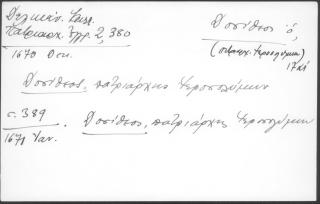 Δελικάν. Ἐπισ.
Πατριαρχ. Ἔγγρ. 2, 380
1670 Οκ.
Δοσίθεος ὁ,
(πατριαρχ. Ἱεροσολύμων)
17 αἰ
Δοσίθεος, πατριάρχης Ἱεροσολύμων
σ. 389
1671 Ἰαν.
Δοσίθεος, πατριάρχης Ἱεροσολύμων